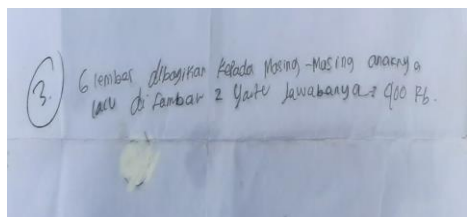 3. 6 lembar dibagikan kepada Masing-Masing anaknya
lalu di tambar 2 yaitu Jawabanya = 900 Rb.